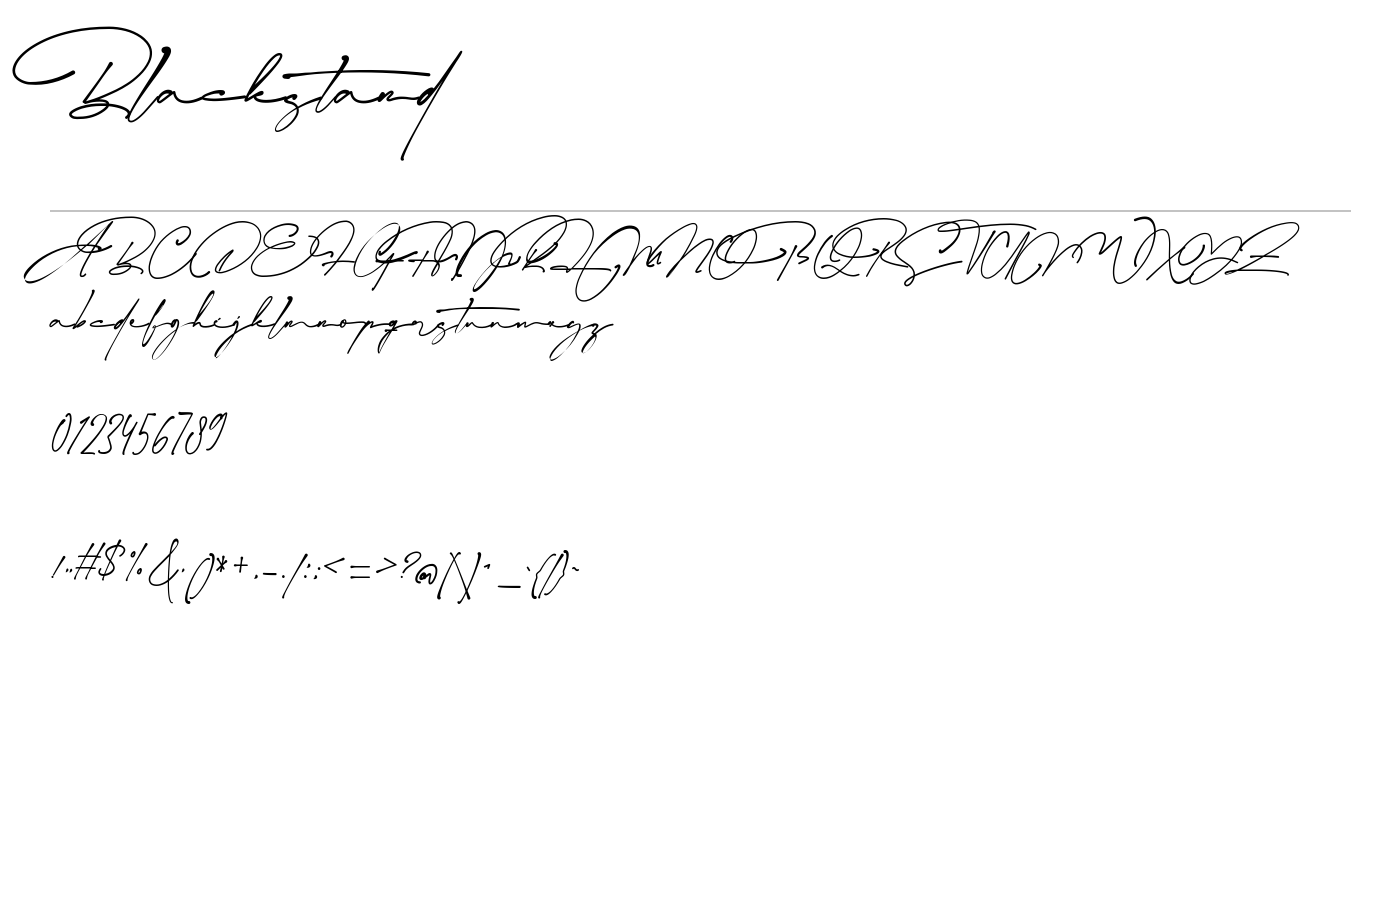 Blackstand
ABCDEFGHIJKLMNOPQRSTUVWXYZ
abcdefghijklmnopqrstuvwxyz
0123456789
!"#$%&'()*+,-./:;<=>?@[\]^_`{|}~